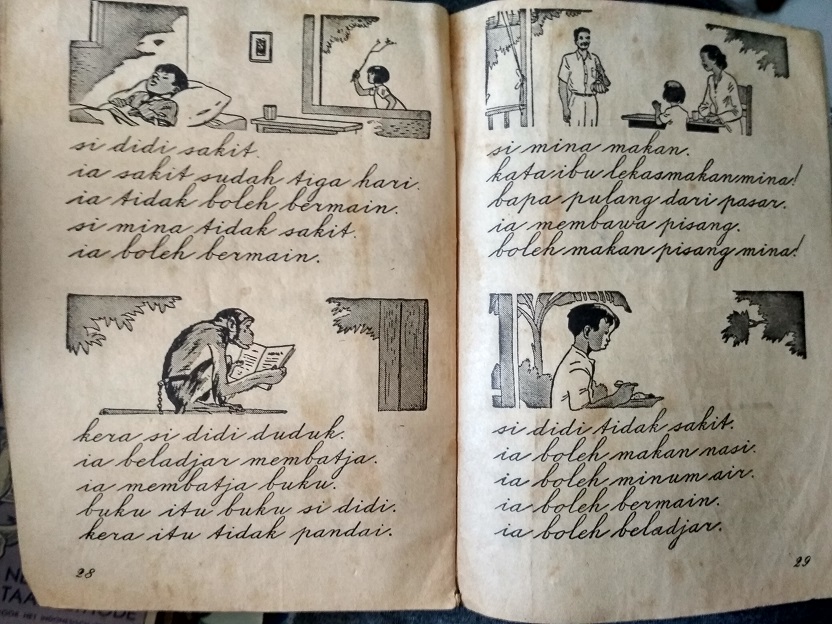 si didi sakit.
ia sakit sudah tiga hari.
ia tidak boleh bermain.
si mina tidak sakit.
ia boleh bermain.
kera si didi duduk.
ia beladjar membatja.
ia membatja buku.
buku itu buku si didi.
kera itu tidak pandai.
28
si mina makan.
kata ibu lekas makan mina!
bapa pulang dari pasar.
ia membawa pisang.
boleh makan pisang mina!
si didi tidak sakit.
ia boleh makan nasi.
ia boleh minum air.
ia boleh bermain.
ia boleh beladjar.
29